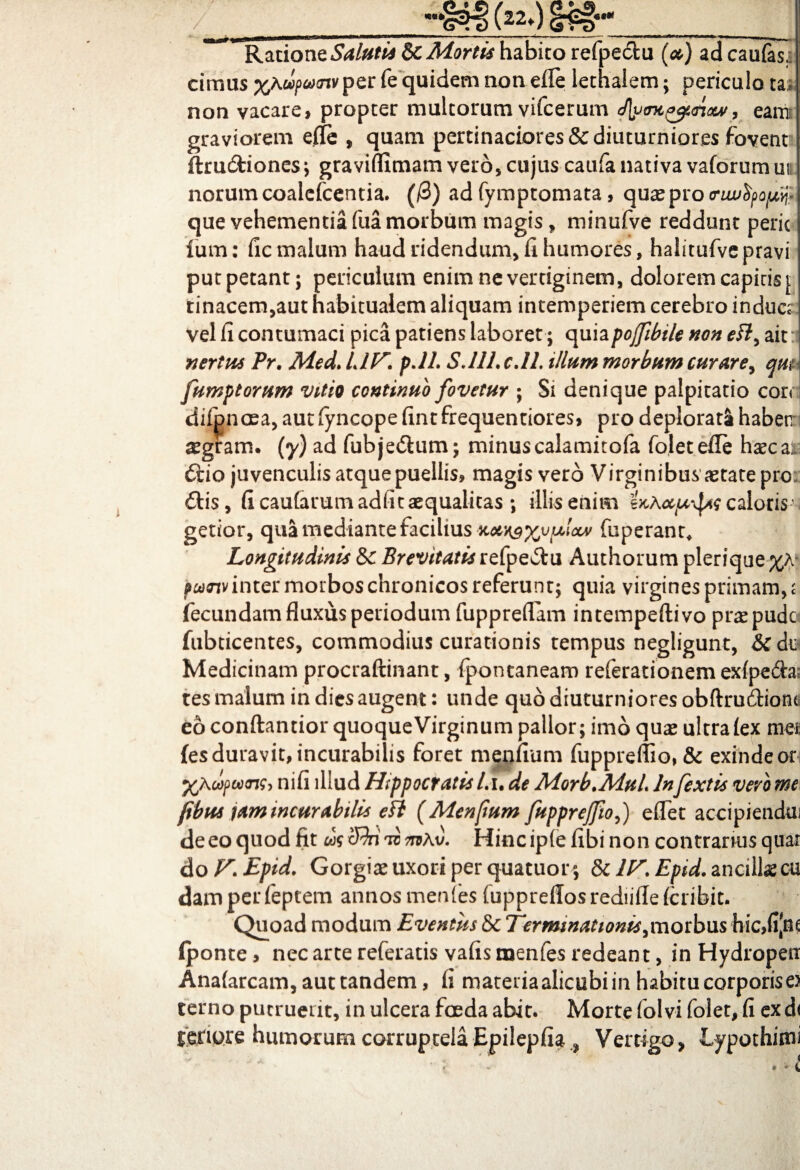 (22.)
Ratione Salutis & Mortis habito reſpectu (α) ad cauſas.
cimus χλώρωσιν per ſe quidem non eſſe lethalem; periculo ta
non vacare, propter multorum viſcerum eam
graviorem eſſe, quam pertinaciores & diuturniores fovent
ſtructiones; graviſſimam verò, cujus cauſa nativa vaſorum ut
norum coaleſcentia. (β) ad ſymptomata, quæ pro
que vehementiâ ſuâ morbum magis, minuſve reddunt peric
ſum: ſic malum haud ridendum, ſi humores, halituſve pravi
put petant; periculum enim ne vertiginem, dolorem capitis
tinacem, aut habitualem aliquam intemperiem cerebro induc
vel ſi contumaci picâ patiens laboret; quia poſſibile non eſt, ait
nertus Pr. Med. l.IV. p.II. S.III. c.II. illum morbum curare, qui
ſumptorum vitio continuò fovetur; Si denique palpitatio cor
diſpnœa, aut ſyncope ſint frequentiores, pro deploratâ haben
ægram. (γ) ad ſubjectum; minus calamitoſa ſolet eſſe hæc a
ctio juvenculis atque puellis, magis verò Virginibus ætate pro
ctis, ſi cauſarum adſit æqualitas; illis enim caloris
getior, quâ mediante facilius ſuperant.
Longitudinis & Brevitatis reſpectu Authorum plerique χλ
ρωσιν inter morbos chronicos referunt; quia virgines primam,
ſecundam fluxûs periodum ſuppreſſam intempeſtivo præ pudo
ſubticentes, commodius curationis tempus negligunt, & du
Medicinam procraſtinant, ſpontaneam reſerationem exſpecta
tes malum in dies augent: unde quò diuturniores obſtructione
eò conſtantior quoque Virginum pallor; imò quæ ultra ſex men
ſes duravit, incurabilis foret menſium ſuppreſſio, & exinde or
χλώρωσις, niſi illud Hippocratis l.I. de Morb. Mul. In ſextis verò me
ſibus jam incurabilis eſt (Menſium ſuppreſſio,) eſſet accipiendu
de eo quod fit ὡς ἐπὶ τὸ πολύ. Hinc ipſe ſibi non contrarius quan
do V. Epid. Gorgiæ uxori per quatuor; & IV. Epid. ancillæ cu
dam per ſeptem annos menſes ſuppreſſos rediiſſe ſcribit.
Quoad modum Eventûs & Terminationis, morbus hic, ſi ne
ſponte, nec arte reſeratis vaſis menſes redeant, in Hydropem
Anaſarcam, aut tandem, ſi materia alicubi in habitu corporis ex
terno putruerit, in ulcera fœda abit. Morte ſolvi ſolet, ſi ex de
teriore humorum corruptelâ Epilepſia, Vertigo, Lypothimi